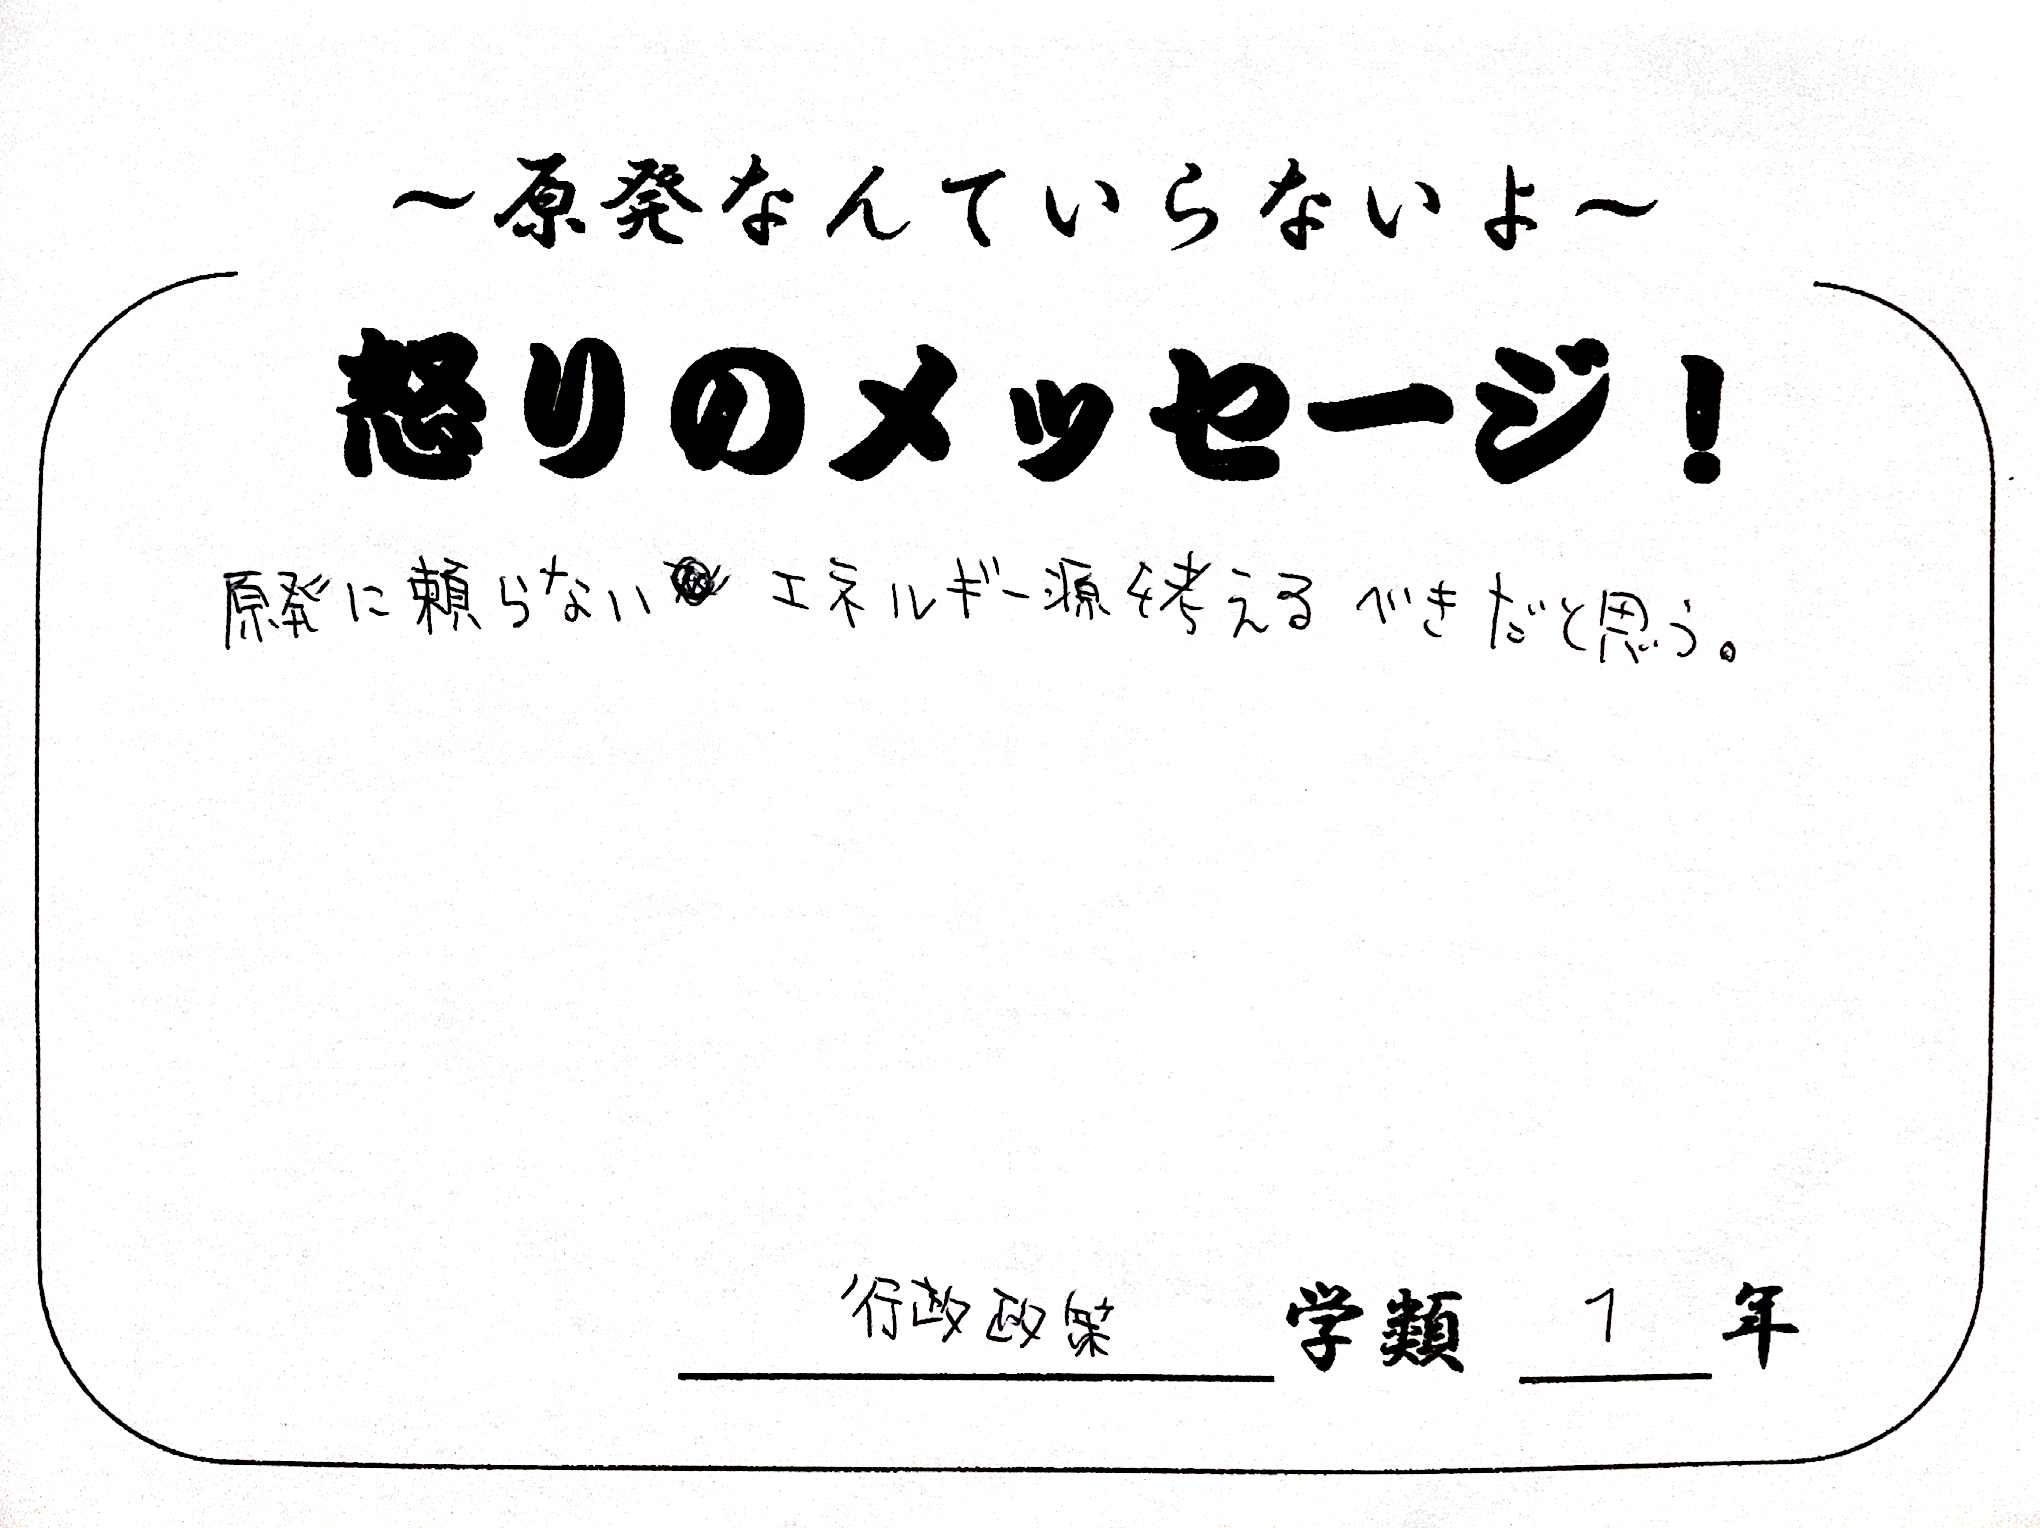 ～原発なんていらないよ～
怒りのメッセージ！
原発に頼らない エネルギー源を考えるべきだと思う。
行政政策 学類 1 年